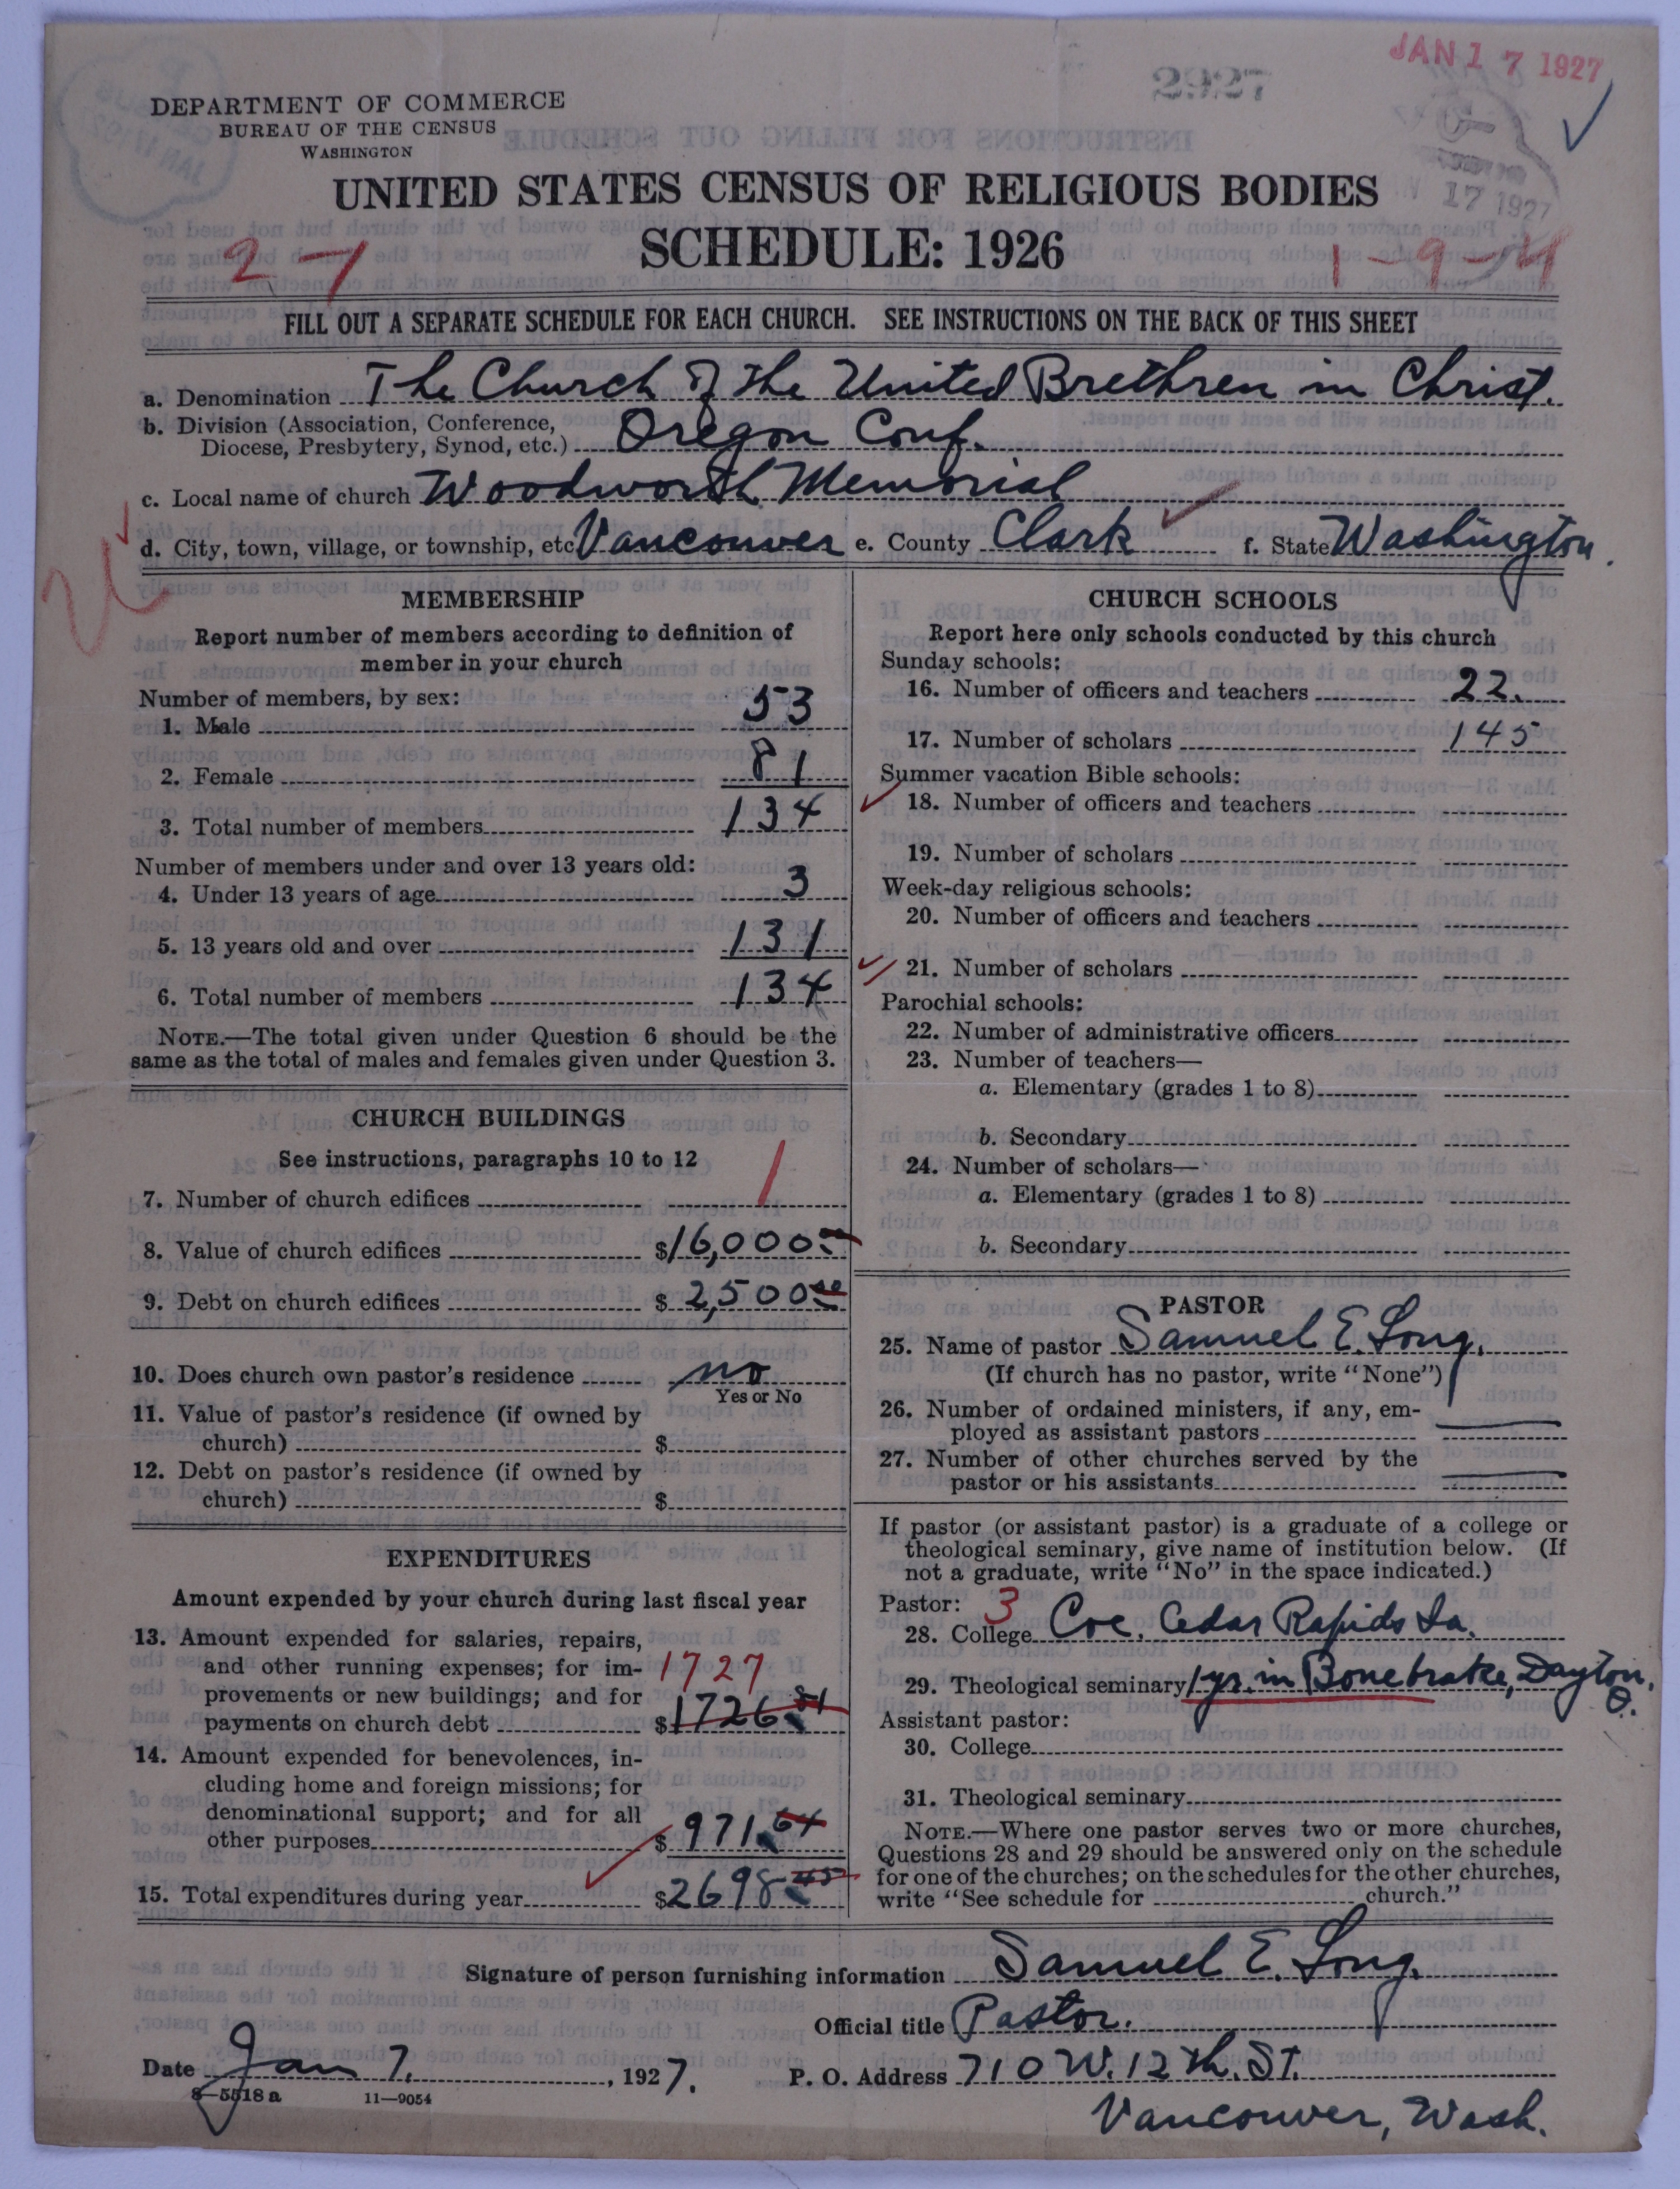 JAN 17 1927
2927
DEPARTMENT OF COMMERCE
BUREAU OF THE CENSUS
WASHINGTON
17 1927
UNITED STATES CENSUS OF RELIGIOUS BODIES
SCHEDULE: 1926
2-1
1-9-4
FILL OUT A SEPARATE SCHEDULE FOR EACH CHURCH. SEE INSTRUCTIONS ON THE BACK OF THIS SHEET
a. Denomination The Church of the United Brethren in Christ.
b. Division (Association, Conference,
Diocese, Presbytery, Synod, etc.) Oregon Conf.
c. Local name of church Woodworth Memorial
d. City, town, village, or township, etc. Vancouver e. County Clark f. State Washington.
MEMBERSHIP
Report number of members according to definition of
member in your church
Number of members, by sex:
1. Male 53
2. Female 81
3. Total number of members 134
Number of members under and over 13 years old:
4. Under 13 years of age 3
5. 13 years old and over 131
6. Total number of members 134
NOTE.—The total given under Question 6 should be the
same as the total of males and females given under Question 3.
CHURCH BUILDINGS
See instructions, paragraphs 10 to 12
7. Number of church edifices 1
8. Value of church edifices $16,000.00
9. Debt on church edifices $2,500.00
10. Does church own pastor's residence no
Yes or No
11. Value of pastor's residence (if owned by
church) $
12. Debt on pastor's residence (if owned by
church) $
EXPENDITURES
Amount expended by your church during last fiscal year
13. Amount expended for salaries, repairs,
and other running expenses; for im- 1727
provements or new buildings; and for
payments on church debt $1726.81
14. Amount expended for benevolences, in-
cluding home and foreign missions; for
denominational support; and for all
other purposes $971.64
15. Total expenditures during year $2698.45
CHURCH SCHOOLS
Report here only schools conducted by this church
Sunday schools:
16. Number of officers and teachers 22.
17. Number of scholars 145
Summer vacation Bible schools:
18. Number of officers and teachers
19. Number of scholars
Week-day religious schools:
20. Number of officers and teachers
21. Number of scholars
Parochial schools:
22. Number of administrative officers
23. Number of teachers—
a. Elementary (grades 1 to 8)
b. Secondary
24. Number of scholars—
a. Elementary (grades 1 to 8)
b. Secondary
PASTOR
25. Name of pastor Samuel E. Long.
(If church has no pastor, write "None")
26. Number of ordained ministers, if any, em-
ployed as assistant pastors
27. Number of other churches served by the
pastor or his assistants
If pastor (or assistant pastor) is a graduate of a college or
theological seminary, give name of institution below. (If
not a graduate, write "No" in the space indicated.)
Pastor: 3
28. College Coe, Cedar Rapids Ia.
29. Theological seminary 1 yr. in Bonebrake, Dayton, O.
Assistant pastor:
30. College
31. Theological seminary
NOTE.—Where one pastor serves two or more churches,
Questions 28 and 29 should be answered only on the schedule
for one of the churches; on the schedules for the other churches,
write "See schedule for church."
Signature of person furnishing information Samuel E. Long.
Official title Pastor.
Date Jan 7, 1927. P. O. Address 710 W. 12th. St.
8-5518 a 11-9054
Vancouver, Wash.